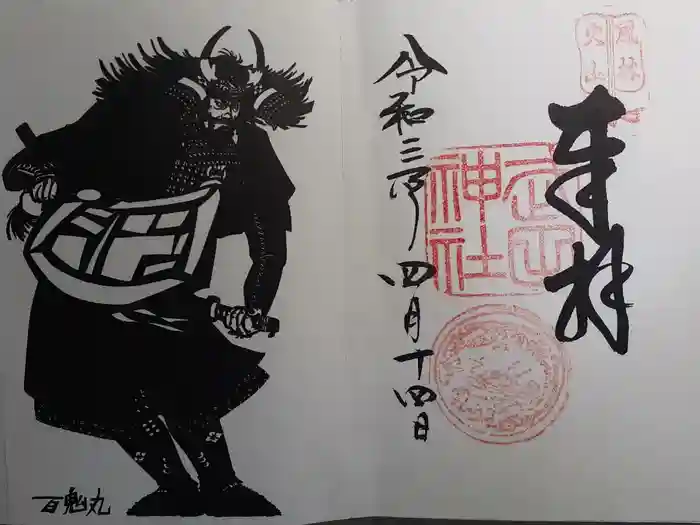 風林
火山
奉拝
武田
神社
令和三年四月十四日
百鬼丸